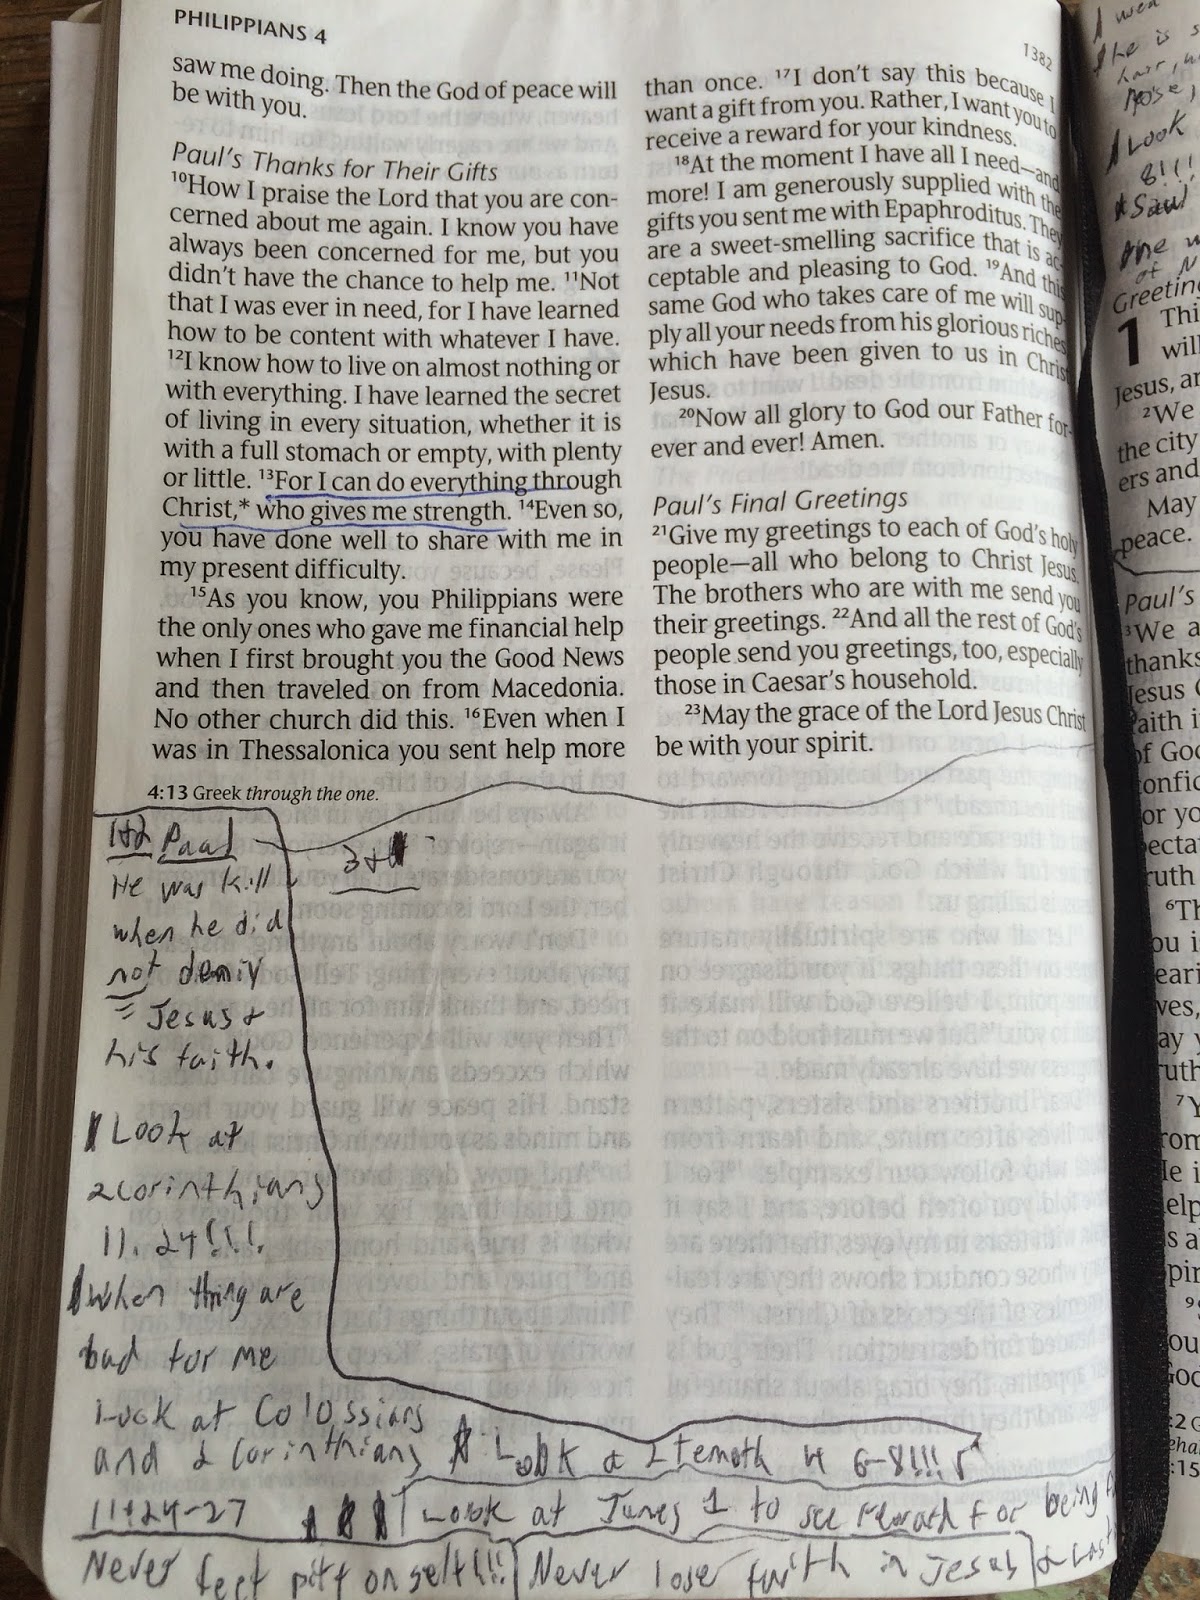 PHILIPPIANS 4
1382
saw me doing. Then the God of peace will
be with you.
Paul's Thanks for Their Gifts
10How I praise the Lord that you are con-
cerned about me again. I know you have
always been concerned for me, but you
didn't have the chance to help me. 11Not
that I was ever in need, for I have learned
how to be content with whatever I have.
12I know how to live on almost nothing or
with everything. I have learned the secret
of living in every situation, whether it is
with a full stomach or empty, with plenty
or little. 13For I can do everything through
Christ,* who gives me strength. 14Even so,
you have done well to share with me in
my present difficulty.
15As you know, you Philippians were
the only ones who gave me financial help
when I first brought you the Good News
and then traveled on from Macedonia.
No other church did this. 16Even when I
was in Thessalonica you sent help more
4:13 Greek through the one.
than once. 17I don't say this because I
want a gift from you. Rather, I want you to
receive a reward for your kindness.
18At the moment I have all I need—and
more! I am generously supplied with the
gifts you sent me with Epaphroditus. They
are a sweet-smelling sacrifice that is ac-
ceptable and pleasing to God. 19And this
same God who takes care of me will sup-
ply all your needs from his glorious riches,
which have been given to us in Christ
Jesus.
20Now all glory to God our Father for-
ever and ever! Amen.
Paul's Final Greetings
21Give my greetings to each of God's holy
people—all who belong to Christ Jesus.
The brothers who are with me send you
their greetings. 22And all the rest of God's
people send you greetings, too, especially
those in Caesar's household.
23May the grace of the Lord Jesus Christ
be with your spirit.
1+2 Paul
He was kill
when he did
not demiy
Jesus +
his faith.
Look at
2 corinthians
11.24!!!.
when thing are
bad for me
Look at Colossians
and 2 Corinthians
11+24-27
3+4
Look at 1 temoth 4 6-8!!!
Look at James 1 to see for being
Never feel pitty on self!!!
Never lose faith in Jesus
Look
8!!!
Saul
1 Thi
will
Jesus, an
2We
the city
ers and
May
peace.
Paul's
3We a
thanks